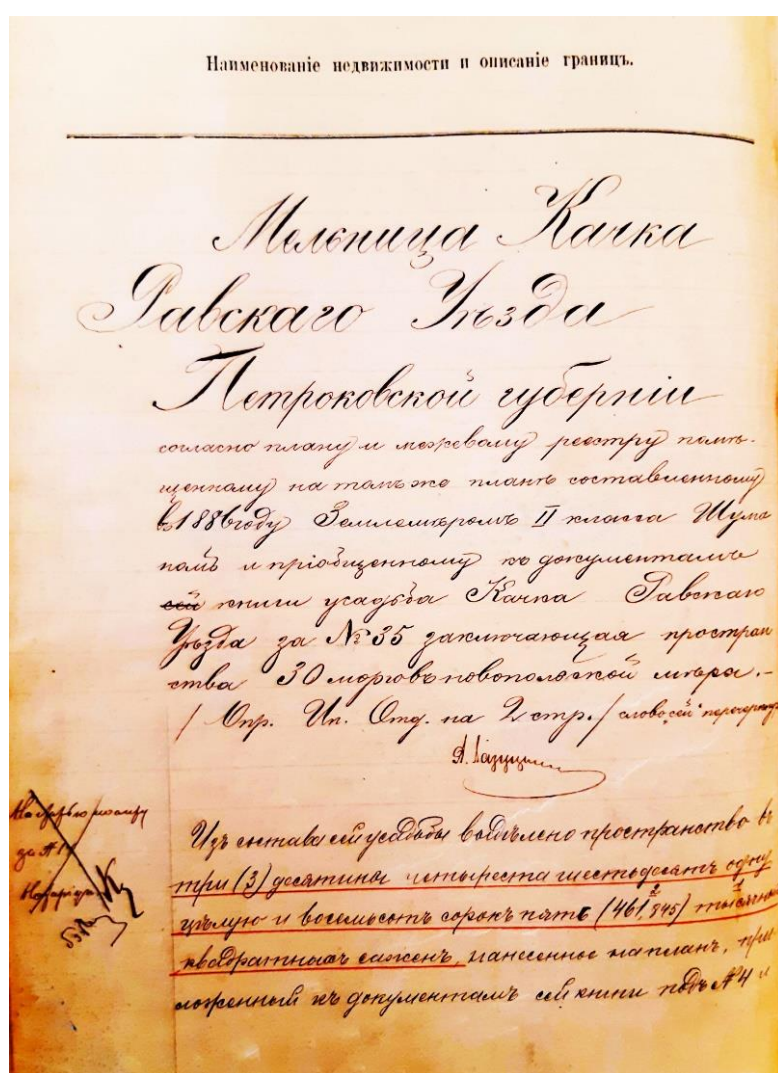 Наименованіе недвижимости и описаніе границъ.
Мельница Качка
Равскаго Уѣзда
Петроковской губерніи
согласно плану и межевому реестру помѣ-
щенному на томъ же планѣ составленному
въ 1886 году Землемѣромъ II класса Шума
номъ и пріобщенному къ документамъ
сей книги усадьба Качка Равскаго
Уѣзда за № 35 заключающая простран
ства 30 морговъ новопольской мѣры.-
/ Опр. Ип. Отд. на 2 стр. / слово "сей" перечеркнуто
Изъ состава сей усадьбы выдѣлено пространство въ
три (3) десятины четыреста шестьдесятъ одну
цѣлую и восемьсотъ сорокъ пять (461,845) тысячн
квадратныхъ сажень, нанесенное на планъ, при
ложенный къ документамъ сей книги подъ № 4 и